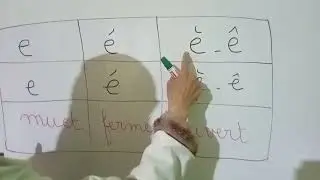 e é è - ê
e é è - ê
muet fermé ouvert